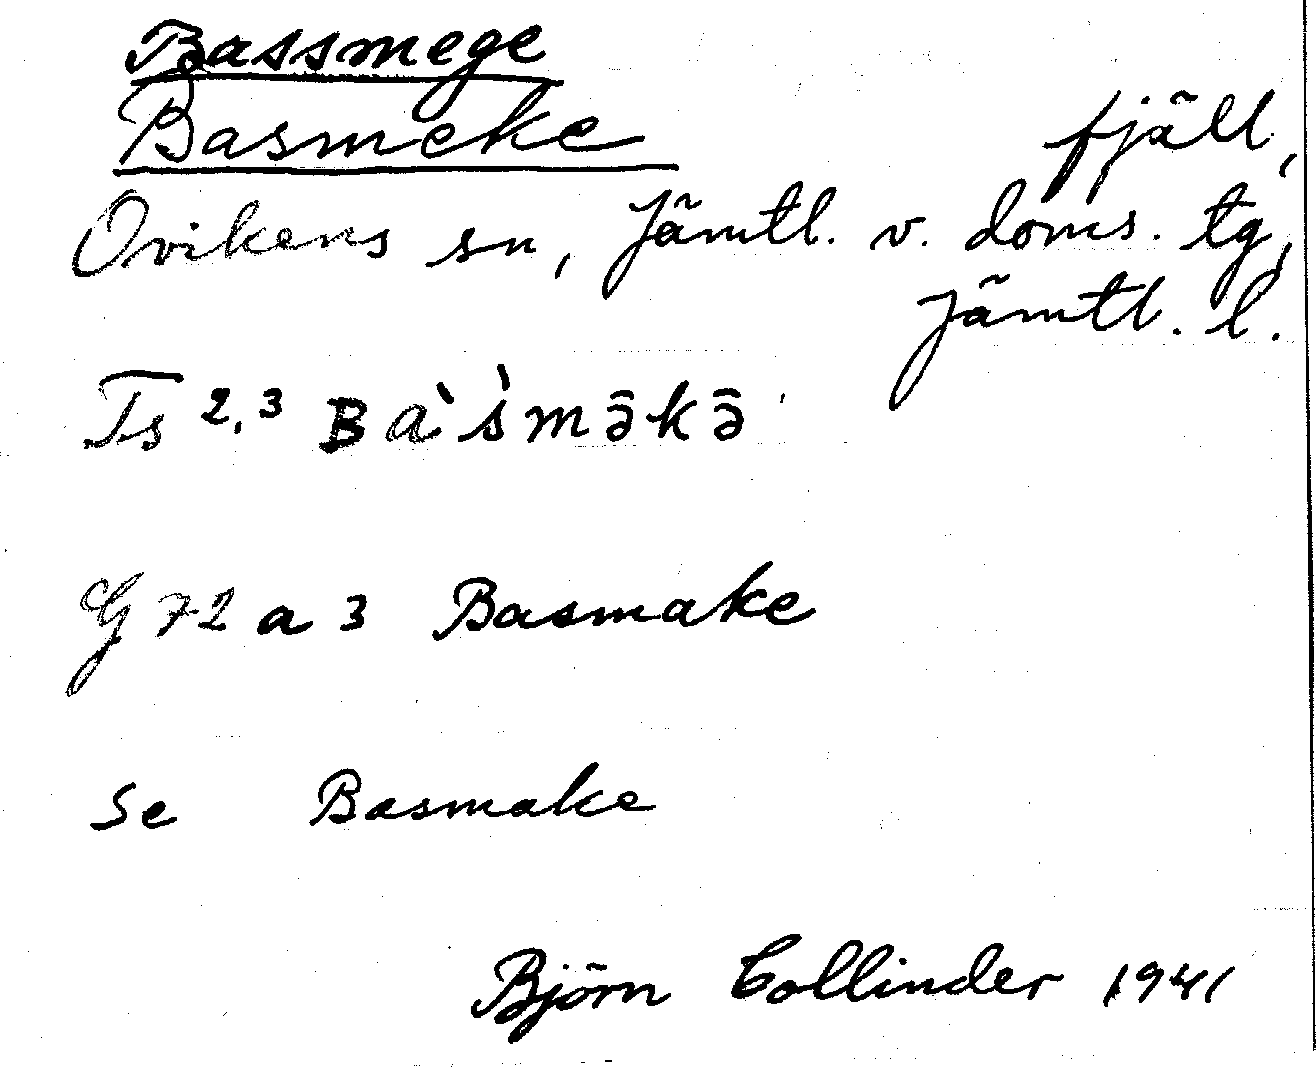 Bassmege
Basmeke fjäll,
Ovikens sn, Jämtl. v. doms. tg,
Jämtl. l.
Ts 2,3 Ba`s̀məkə
G 72 a 3 Basmake
Se Basmake
Björn Collinder 1941